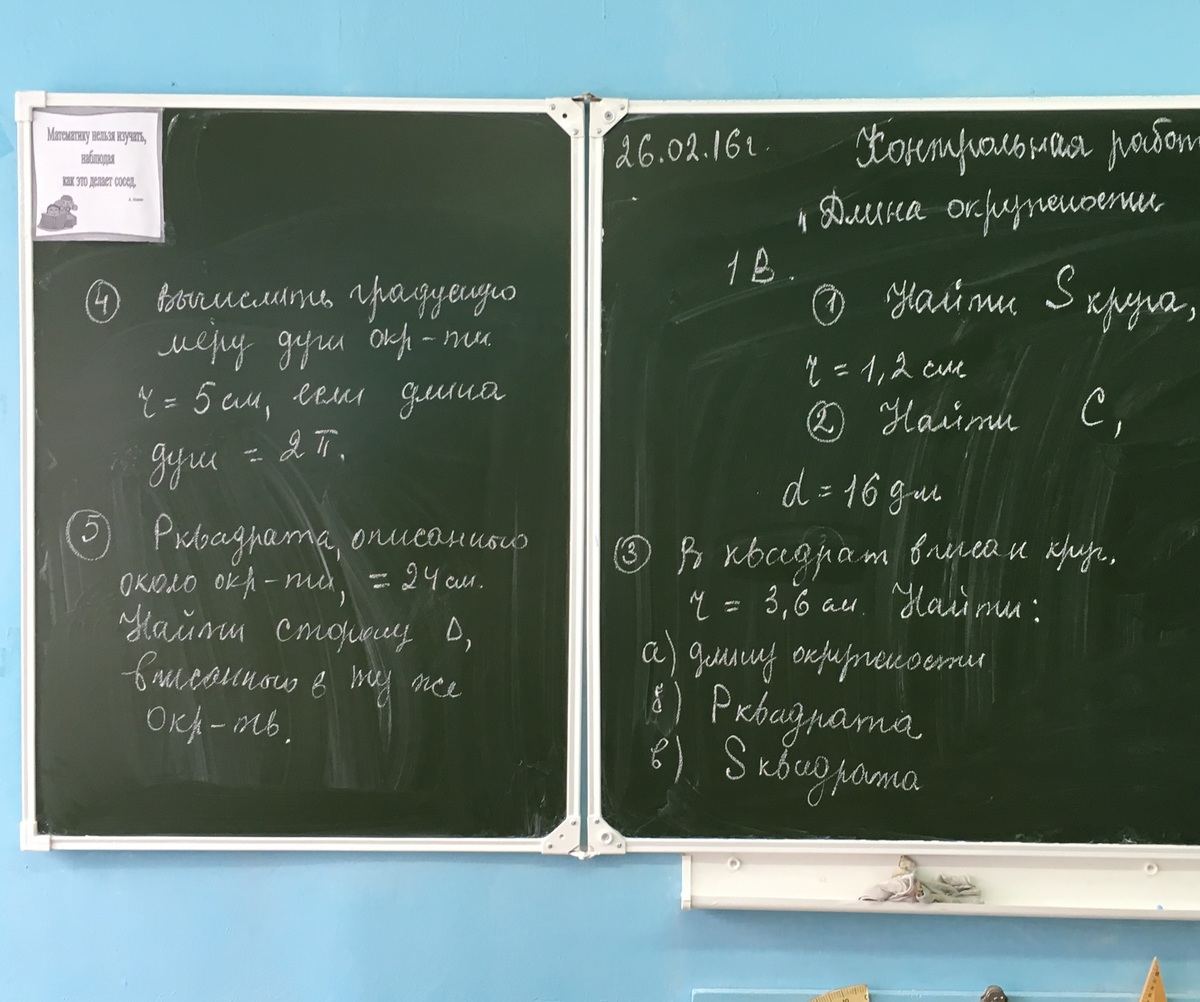 Математику нельзя изучать,
наблюдая
как это делает сосед.
④ Вычислить градусную
меру дуги окр-ти
r = 5 см, если длина
дуги = 2π.
⑤ Pквадрата, описанного
около окр-ти, = 24 см.
Найти сторону Δ,
вписанного в ту же
окр-ть.
26.02.16г. Контрольная работ
„Длина окружности
1 В.
① Найти S круга,
r = 1,2 см
② Найти C,
d = 16 дм
③ В квадрат вписан круг.
r = 3,6 см. Найти:
а) длину окружности
б) Pквадрата
в) S квадрата